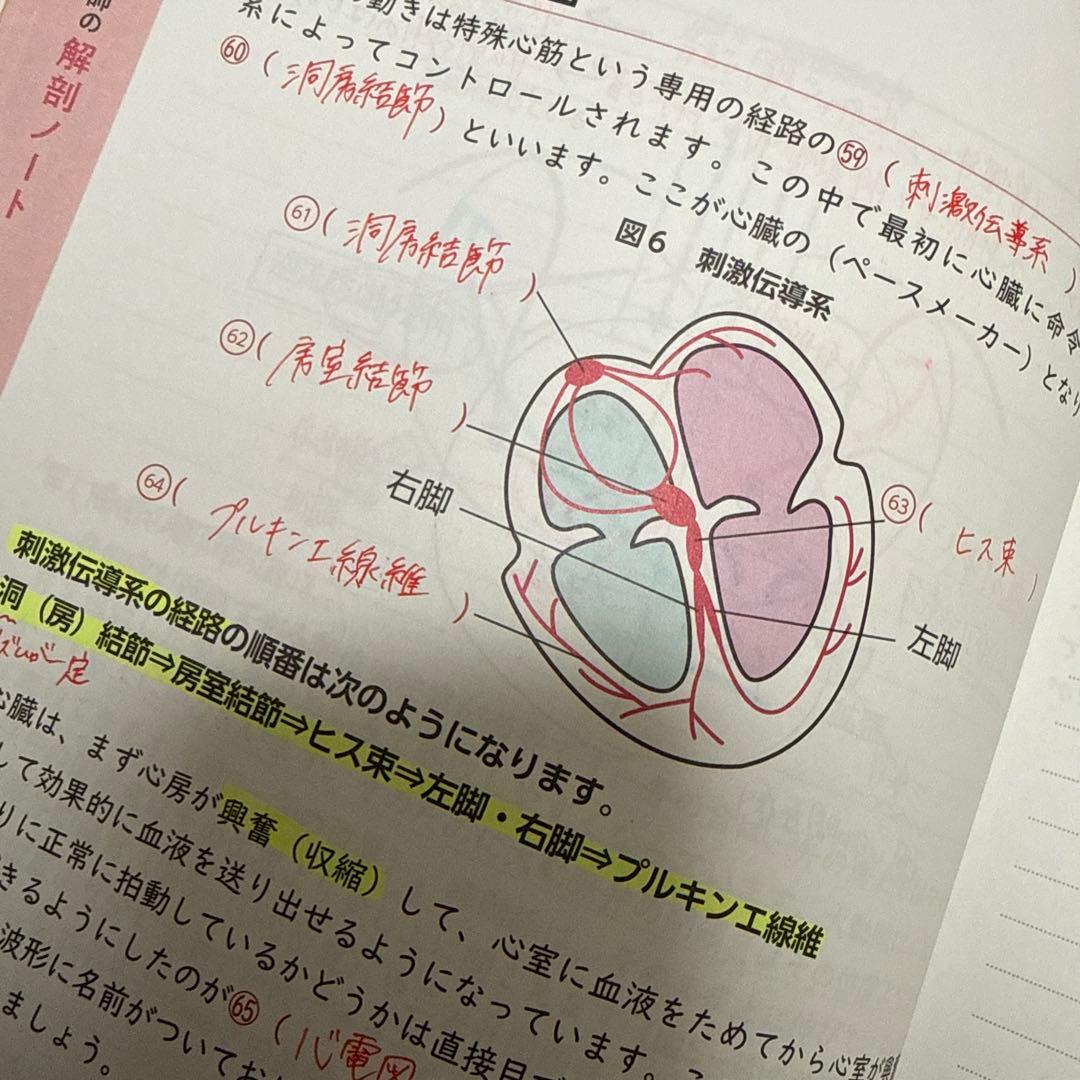 師の解剖ノート
動きは特殊心筋という専用の経路の㊾(刺激伝導系)
系によってコントロールされます。この中で最初に心臓に命令
㊿(洞房結節)といいます。ここが心臓の(ペースメーカー)となり
図6 刺激伝導系
61(洞房結節)
62(房室結節)
右脚
63(ヒス束)
64(プルキンエ線維)
左脚
刺激伝導系の経路の順番は次のようになります。
洞(房)結節⇒房室結節⇒ヒス束⇒左脚・右脚⇒プルキンエ線維
心臓は、まず心房が興奮(収縮)して、心室に血液をためてから心室が興
して効果的に血液を送り出せるようになっています。
りに正常に拍動しているかどうかは直接目で
きるようにしたのが65(心電図
波形に名前がついてお
ましょう。